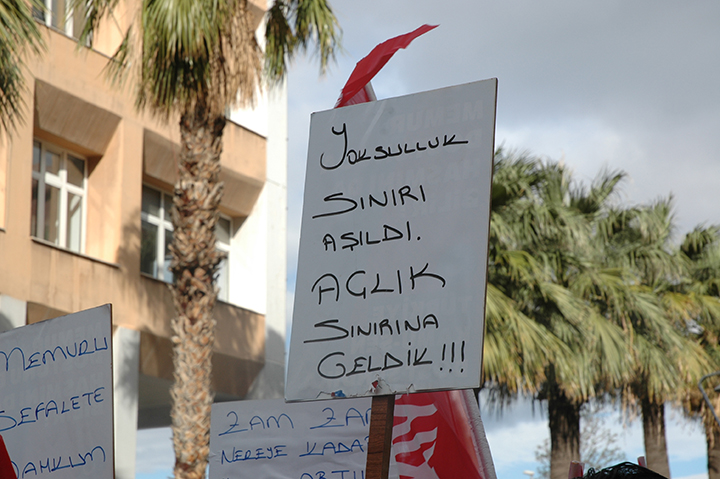 Yoksulluk
SINIRI
AŞILDI.
AÇLIK
SINIRINA
GELDİK!!!
MEMURU
SEFALETE
MAHKUM
ZAM ZAM
NEREYE KADAR